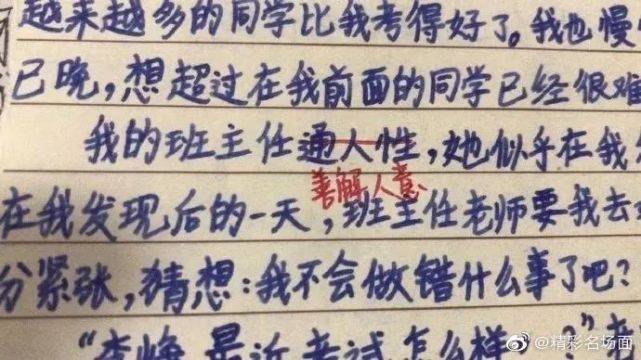 越来越多的同学比我考得好了。我也慢
已晚，想超过在我前面的同学已经很难
我的班主任通人性，她似乎在我
善解人意
在我发现后的一天，班主任老师要我去
分紧张，猜想：我不会做错什么事了吧？
最近考试怎么样
@精彩名场面